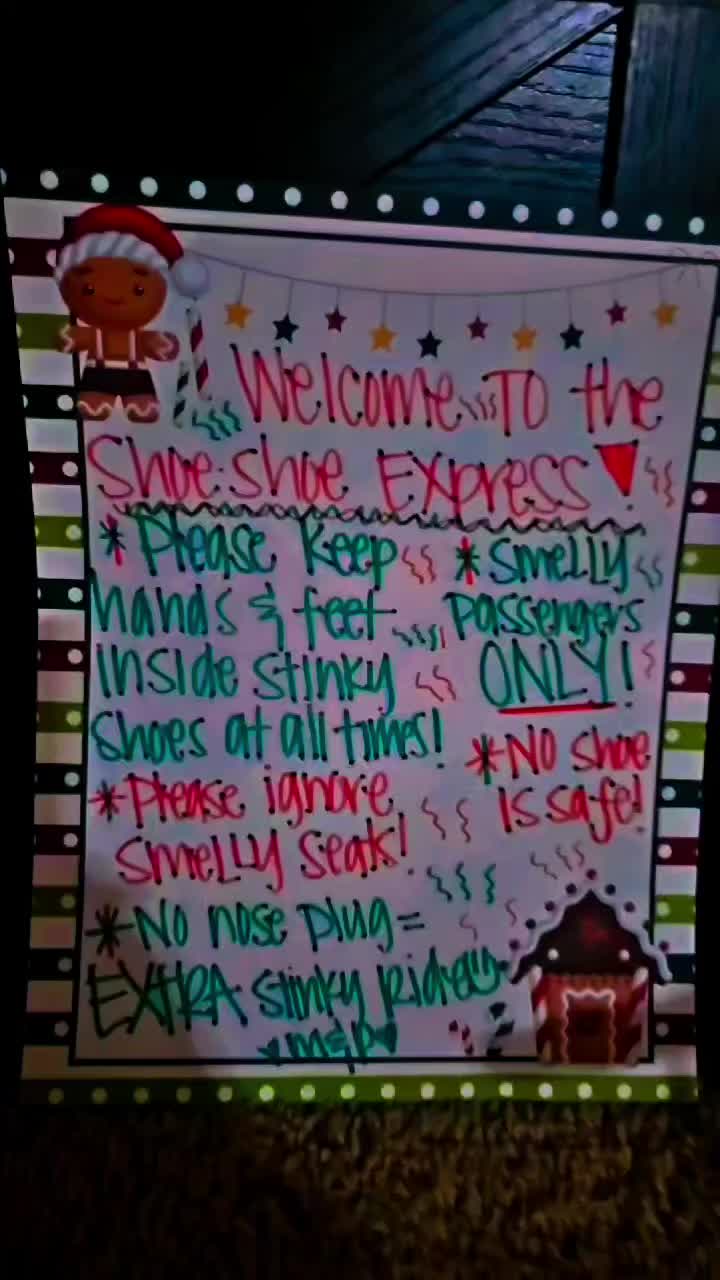 Welcome To the
Shoe-Shoe Express!
* Please keep
hands & feet
inside stinky
shoes at all times!
* Please ignore
smelly seat!
* No nose plug =
EXTRA stinky ride
* Smelly
passengers
ONLY!
* No shoe
is safe!
M&P